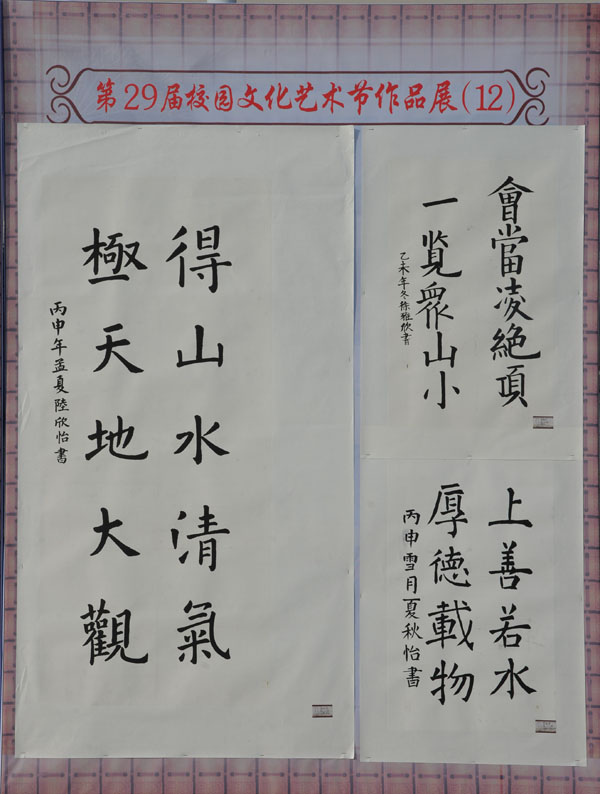 第29届校园文化艺术节作品展(12)
得山水清氣
極天地大觀
丙申年孟夏陸欣怡書
會當凌絶頂
一览眾山小
乙未年冬徐雅欣書
上善若水
厚德載物
丙申雪月夏秋怡書